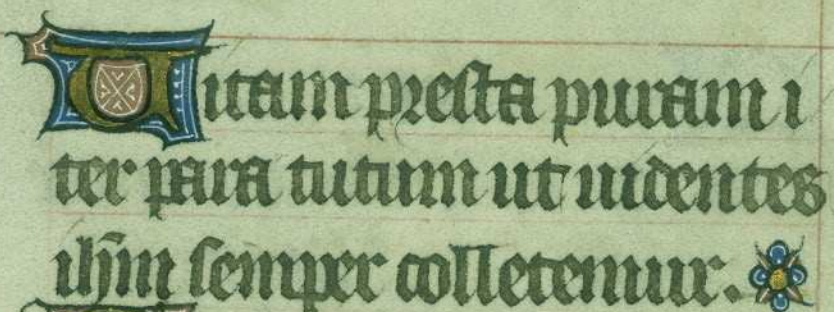 Uitam presta puram i
ter para tutum ut uidentes
ihm̄ semper colletemur.